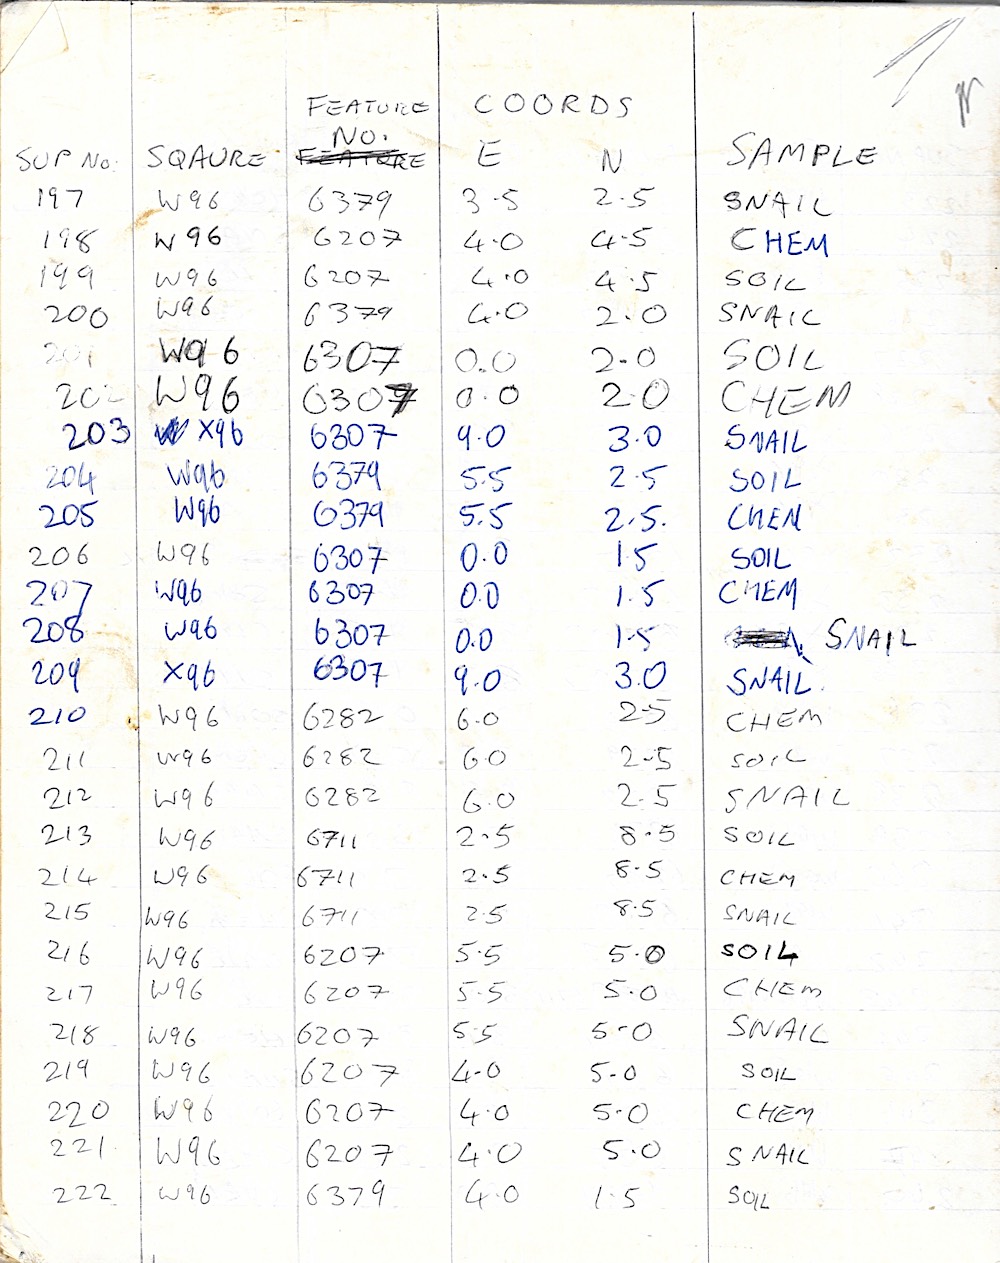 FEATURE COORDS
NO.
SUP No. SQAURE FEATURE E N SAMPLE
197 W96 6379 3.5 2.5 SNAIL
198 W96 6207 4.0 4.5 CHEM
199 W96 6207 4.0 4.5 SOIL
200 W96 6379 4.0 2.0 SNAIL
201 W96 6307 0.0 2.0 SOIL
202 W96 6307 0.0 2.0 CHEM
203 X96 6307 9.0 3.0 SNAIL
204 W96 6379 5.5 2.5 SOIL
205 W96 6379 5.5 2.5. CHEM
206 W96 6307 0.0 1.5 SOIL
207 W96 6307 0.0 1.5 CHEM
208 W96 6307 0.0 1.5 SNAIL
209 X96 6307 9.0 3.0 SNAIL.
210 W96 6282 6.0 2.5 CHEM
211 W96 6282 6.0 2.5 SOIL
212 W96 6282 6.0 2.5 SNAIL
213 W96 6711 2.5 8.5 SOIL
214 W96 6711 2.5 8.5 CHEM
215 W96 6711 2.5 8.5 SNAIL
216 W96 6207 5.5 5.0 SOIL
217 W96 6207 5.5 5.0 CHEM
218 W96 6207 5.5 5.0 SNAIL
219 W96 6207 4.0 5.0 SOIL
220 W96 6207 4.0 5.0 CHEM
221. W96 6207 4.0 5.0 SNAIL
222 W96 6379 4.0 1.5 SOIL